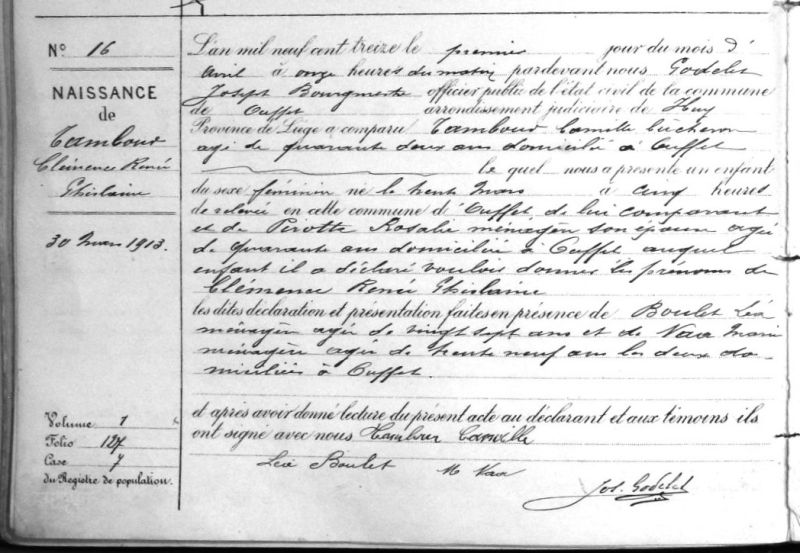 N° 16
NAISSANCE
de
Tambour
Clémence Renée
Ghislaine
30 Mars 1913.
Volume 1
Folio 127
Case 7
du Registre de population.
L'an mil neuf cent treize le premier jour du mois d'
avril à onze heures du matin pardevant nous Godelet
Joseph Bourgmestre officier public de l'état civil de la commune
de Ouffet arrondissement judiciaire de Huy
Province de Liège a comparu Tambour Camille bûcheron
agé de quarante deux ans domicilié à Ouffet
le quel nous a présenté un enfant
du sexe féminin né le trente Mars à cinq heures
de relevée en cette commune d'Ouffet, de lui comparant
et de Pirotte Rosalie ménagère son épouse agée
de quarante ans domiciliée à Ouffet auquel
enfant il a déclaré vouloir donner les prénoms de
Clémence Renée Ghislaine
les dites déclaration et présentation faites en présence de Boulet Léa
ménagère agée de vingt sept ans et de Vax Marie
ménagère agée de trente neuf ans les deux do-
miciliées à Ouffet.
et après avoir donné lecture du présent acte au déclarant et aux témoins ils
ont signé avec nous Tambour Camille
Léa Boulet M Vax
Jos. Godelet